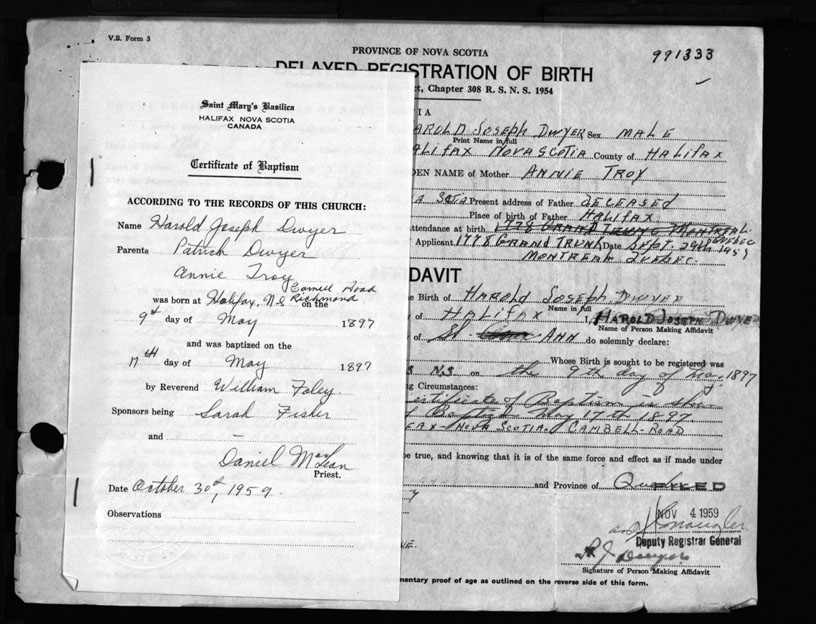 V.S. Form 3
PROVINCE OF NOVA SCOTIA
991333
DELAYED REGISTRATION OF BIRTH
Chapter 308 R. S. N. S. 1954
Saint Mary's Basilica
HALIFAX NOVA SCOTIA
CANADA
Certificate of Baptism
ACCORDING TO THE RECORDS OF THIS CHURCH:
Name Harold Joseph Dwyer
Parents Patrick Dwyer
Annie Troy
was born at Halifax, N.S. Richmond on the
9th day of May 1897
and was baptized on the
17th day of May 1897
by Reverend William Foley
Sponsors being Sarah Fisher
and —
Daniel
Priest.
Date October 30th, 1959.
Observations
AROLD JOSEPH DWYER Sex MALE
Print Name in full
ALIFAX NOVA SCOTIA County of HALIFAX
DEN NAME of Mother ANNIE TROY
Present address of Father DECEASED
Place of birth of Father HALIFAX
ttendance at birth 1778 GRAND TRUNC MONTREAL
Applicant 1778 GRAND TRUNK Date SEPT. 29th 1959
MONTREAL QUEBEC.
DAVIT
e Birth of HAROLD JOSEPH DWYER
Name in full
of HALIFAX I, HAROLD JOSEPH DWYER
Name of Person Making Affidavit
of St ANN do solemnly declare:
Whose Birth is sought to be registered was
N.S on the 9th day of May, 1897
ng Circumstances:
ertificate of Baptism is
Baptized May 17th 1897.
FAX - NOVA SCOTIA. CAMBELL-ROAD
be true, and knowing that it is of the same force and effect as if made under
and Province of
NOV 4 1959
Deputy Registrar General
H J Dwyer
Signature of Person Making Affidavit
mentary proof of age as outlined on the reverse side of this form.